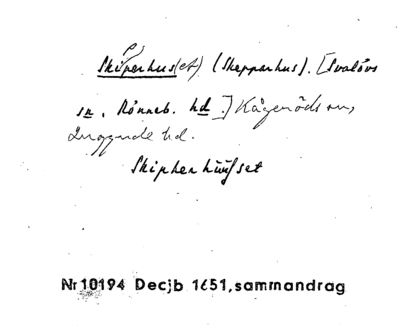 Skipperhus(et) (Skepparhus). [Svalövs
sn, Rönneb. hd.] Kågeröds sn,
Luggude hd.
Skipherhuuset
Nr 10194 Decjb 1651, sammandrag